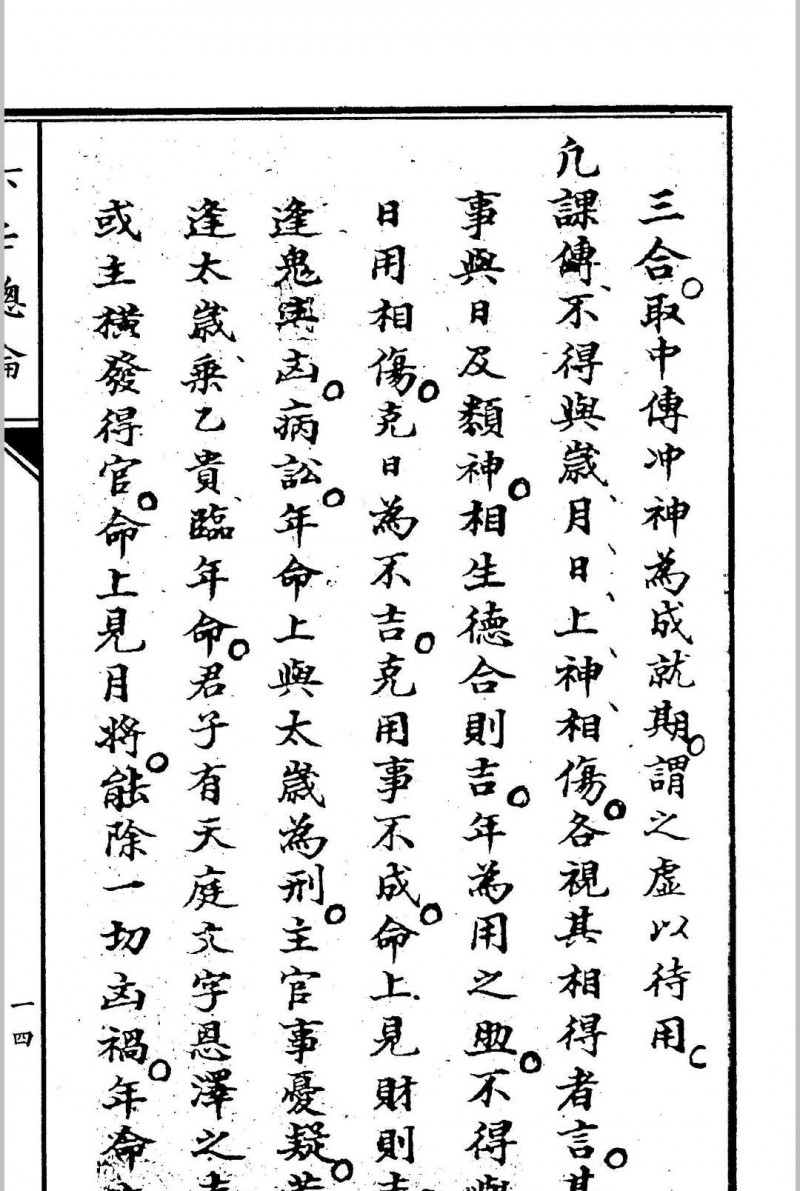 三合。取中傳冲神為成就期。謂之虛以待用。
凢課傳、不得與歲、月、日、上、神、相傷。各視其相得者言。其
事與日及類神。相生德合則吉。年為用之助。不得與
日用相傷。克日為不吉。克用事不成。命上見財則吉
逢鬼與凶。病訟。年命上與太歲為刑。主官事憂疑。若
逢太歲、乘乙貴、臨年命。君子有天庭文字恩澤之吉
或主橫發得官。命上見月將。能除一切凶禍。年命
六壬總論
一四